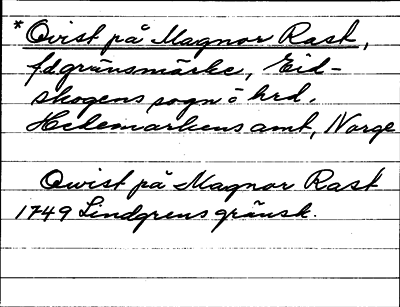 *Qvist på Magnor Rast,
fdgränsmärke, Eid-
skogens sogn o hrd,
Hedemarkens amt, Norge
Qwist på Magnor Rast
1749 Lindgrens gränsk.